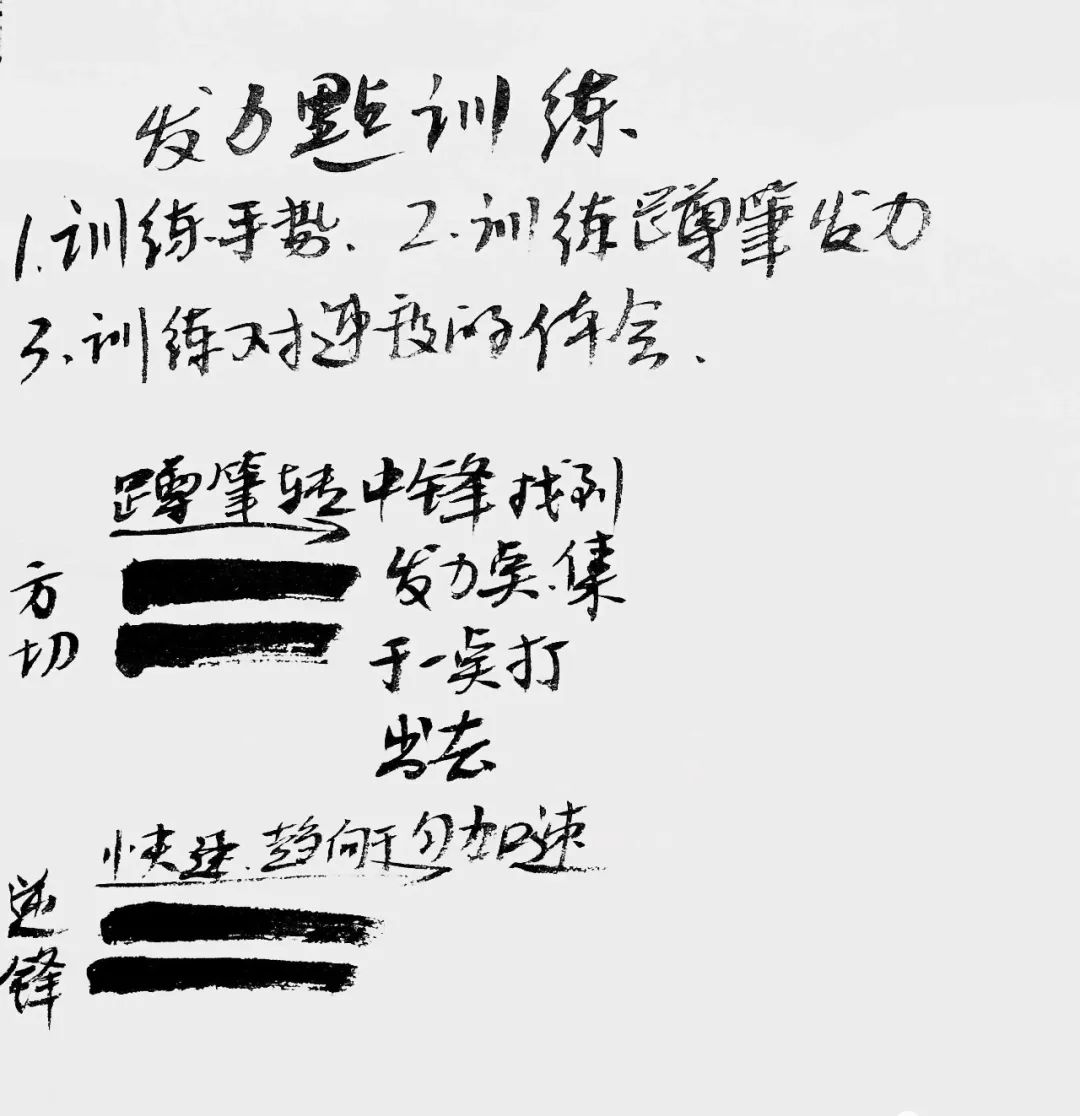 发力點训练
1.训练手势. 2.训练蹲笔发力
3.训练对速度的体会.
蹲筆转中锋找到
发力点.集
于一点打
出去
方切
快速.趋向于匀加速
逆锋